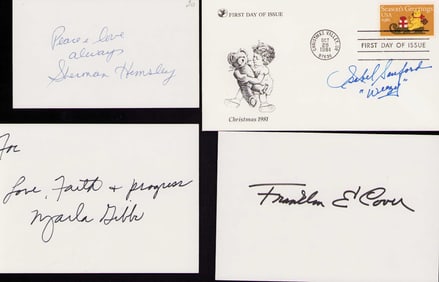 Peace & love
always
Sherman Hemsley
FIRST DAY OF ISSUE
Season's Greetings
USA
1981
CHRISTMAS VALLEY, OR
OCT
28
1981
97638
FIRST DAY OF ISSUE
Isabel Sanford
"Weezy"
Christmas 1981
For
Love, Faith & progress
Marla Gibbs
Franklin E Cover